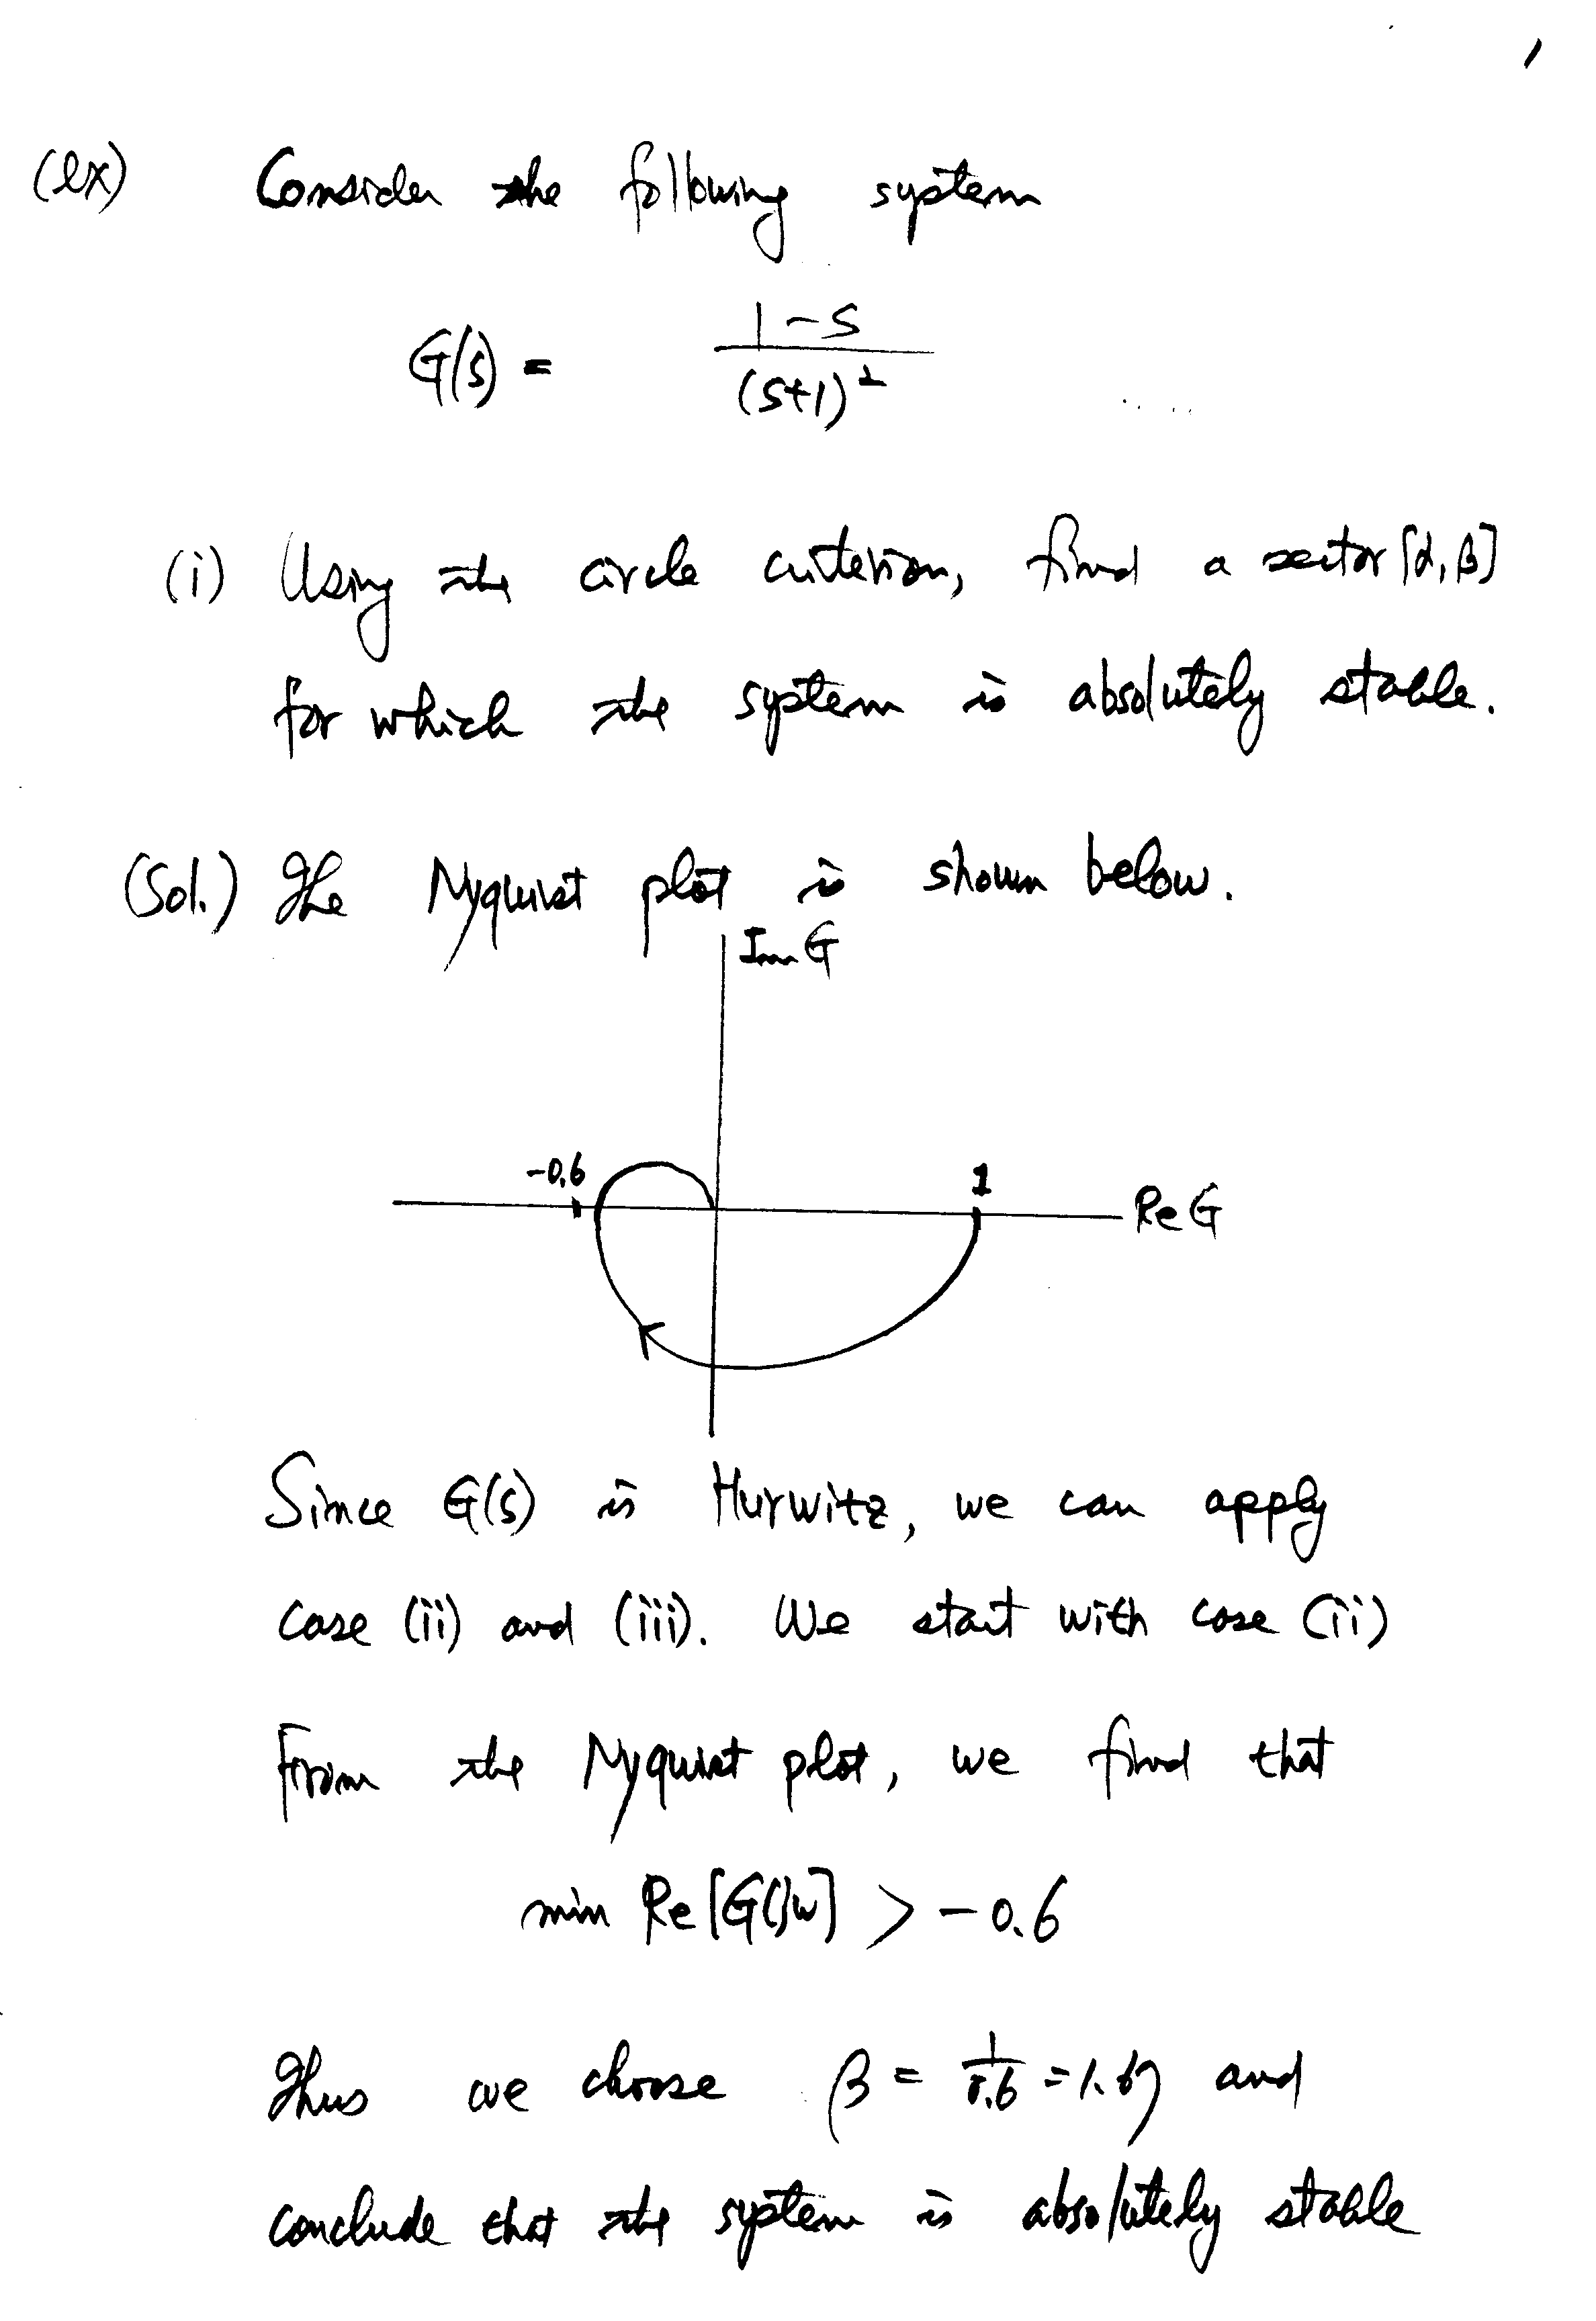 (ex) Consider the following system
G(s) = 1-s
(s+1)²
(i) Using the circle criterion, find a sector [α, β]
for which the system is absolutely stable.
(Sol.) The Nyquist plot is shown below.
Im G
-0.6
1
Re G
Since G(s) is Hurwitz, we can apply
case (ii) and (iii). We start with case (ii)
From the Nyquist plot, we find that
min Re[G(jw] > -0.6
Thus we choose β = 1/0.6 = 1.67 and
conclude that the system is absolutely stable